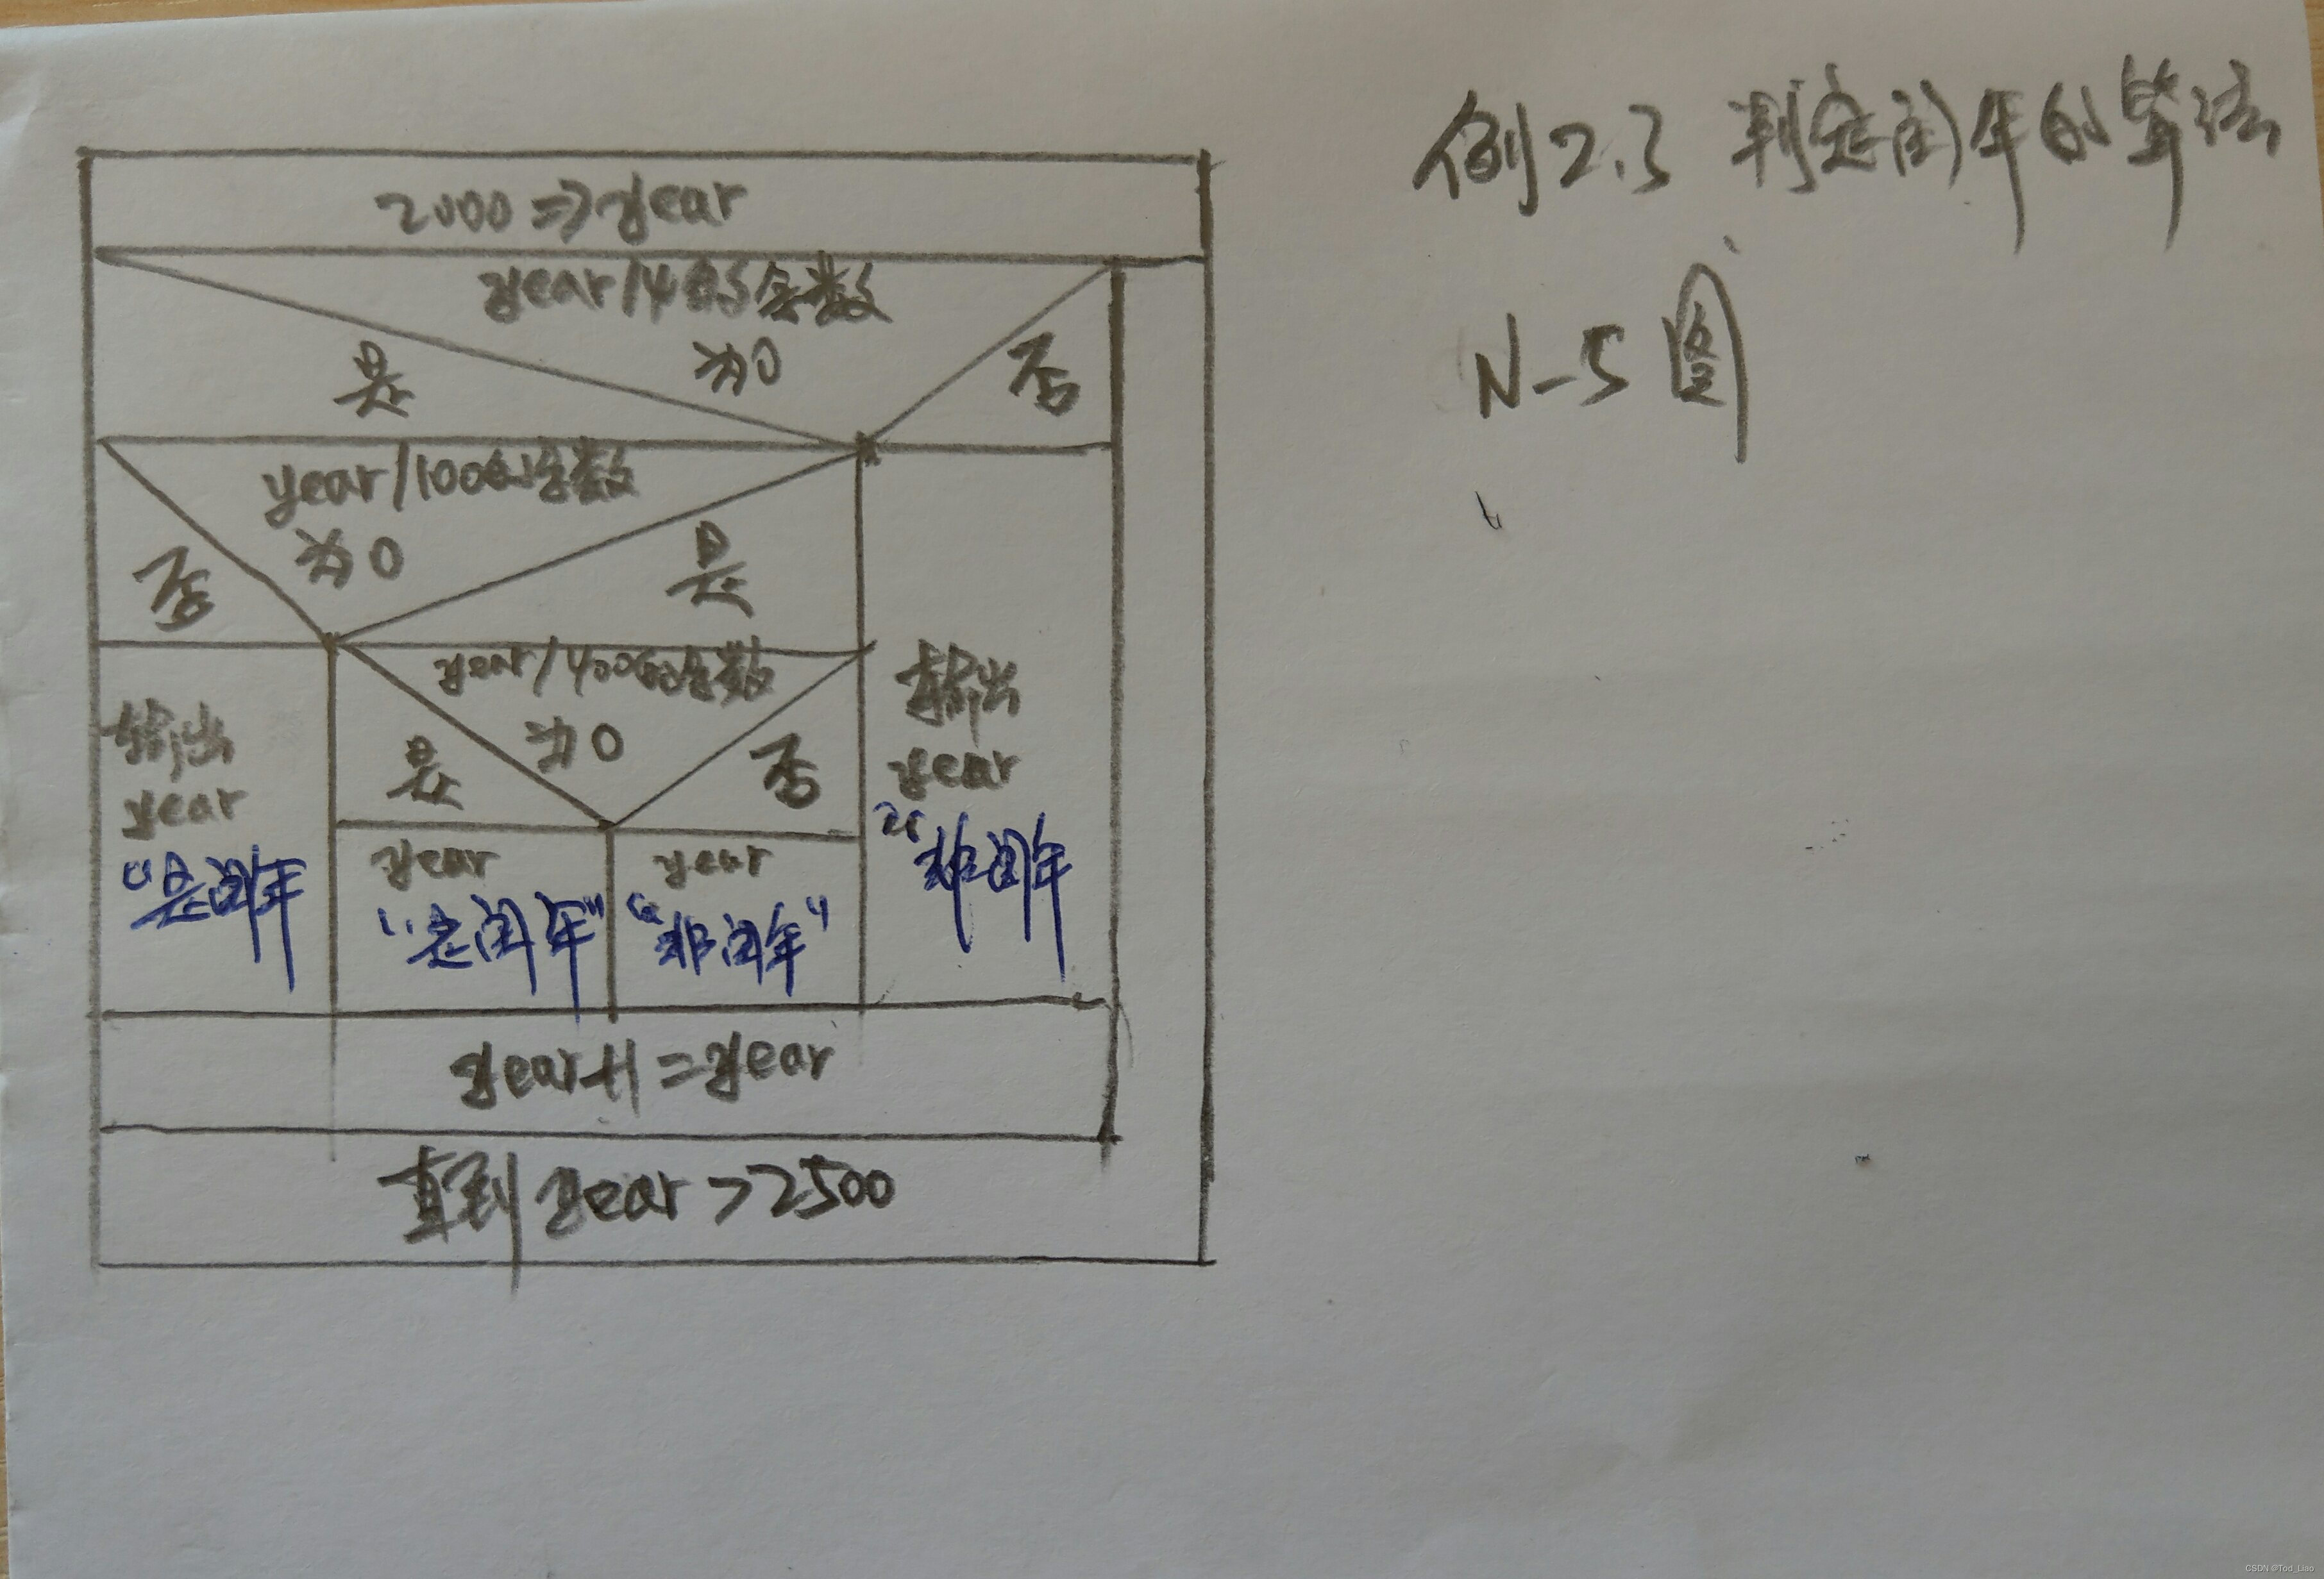 例2.3 判定闰年的算法
N-S图
2000⇒year
year/4的余数
为0
是
否
year/100的余数
为0
否
是
year/400的余数
为0
是
否
输出
year
"是闰年
year
"是闰年"
year
"非闰年"
输出
year
"非闰年
year+1=year
直到year>2500
CSDN @Tod_Liao